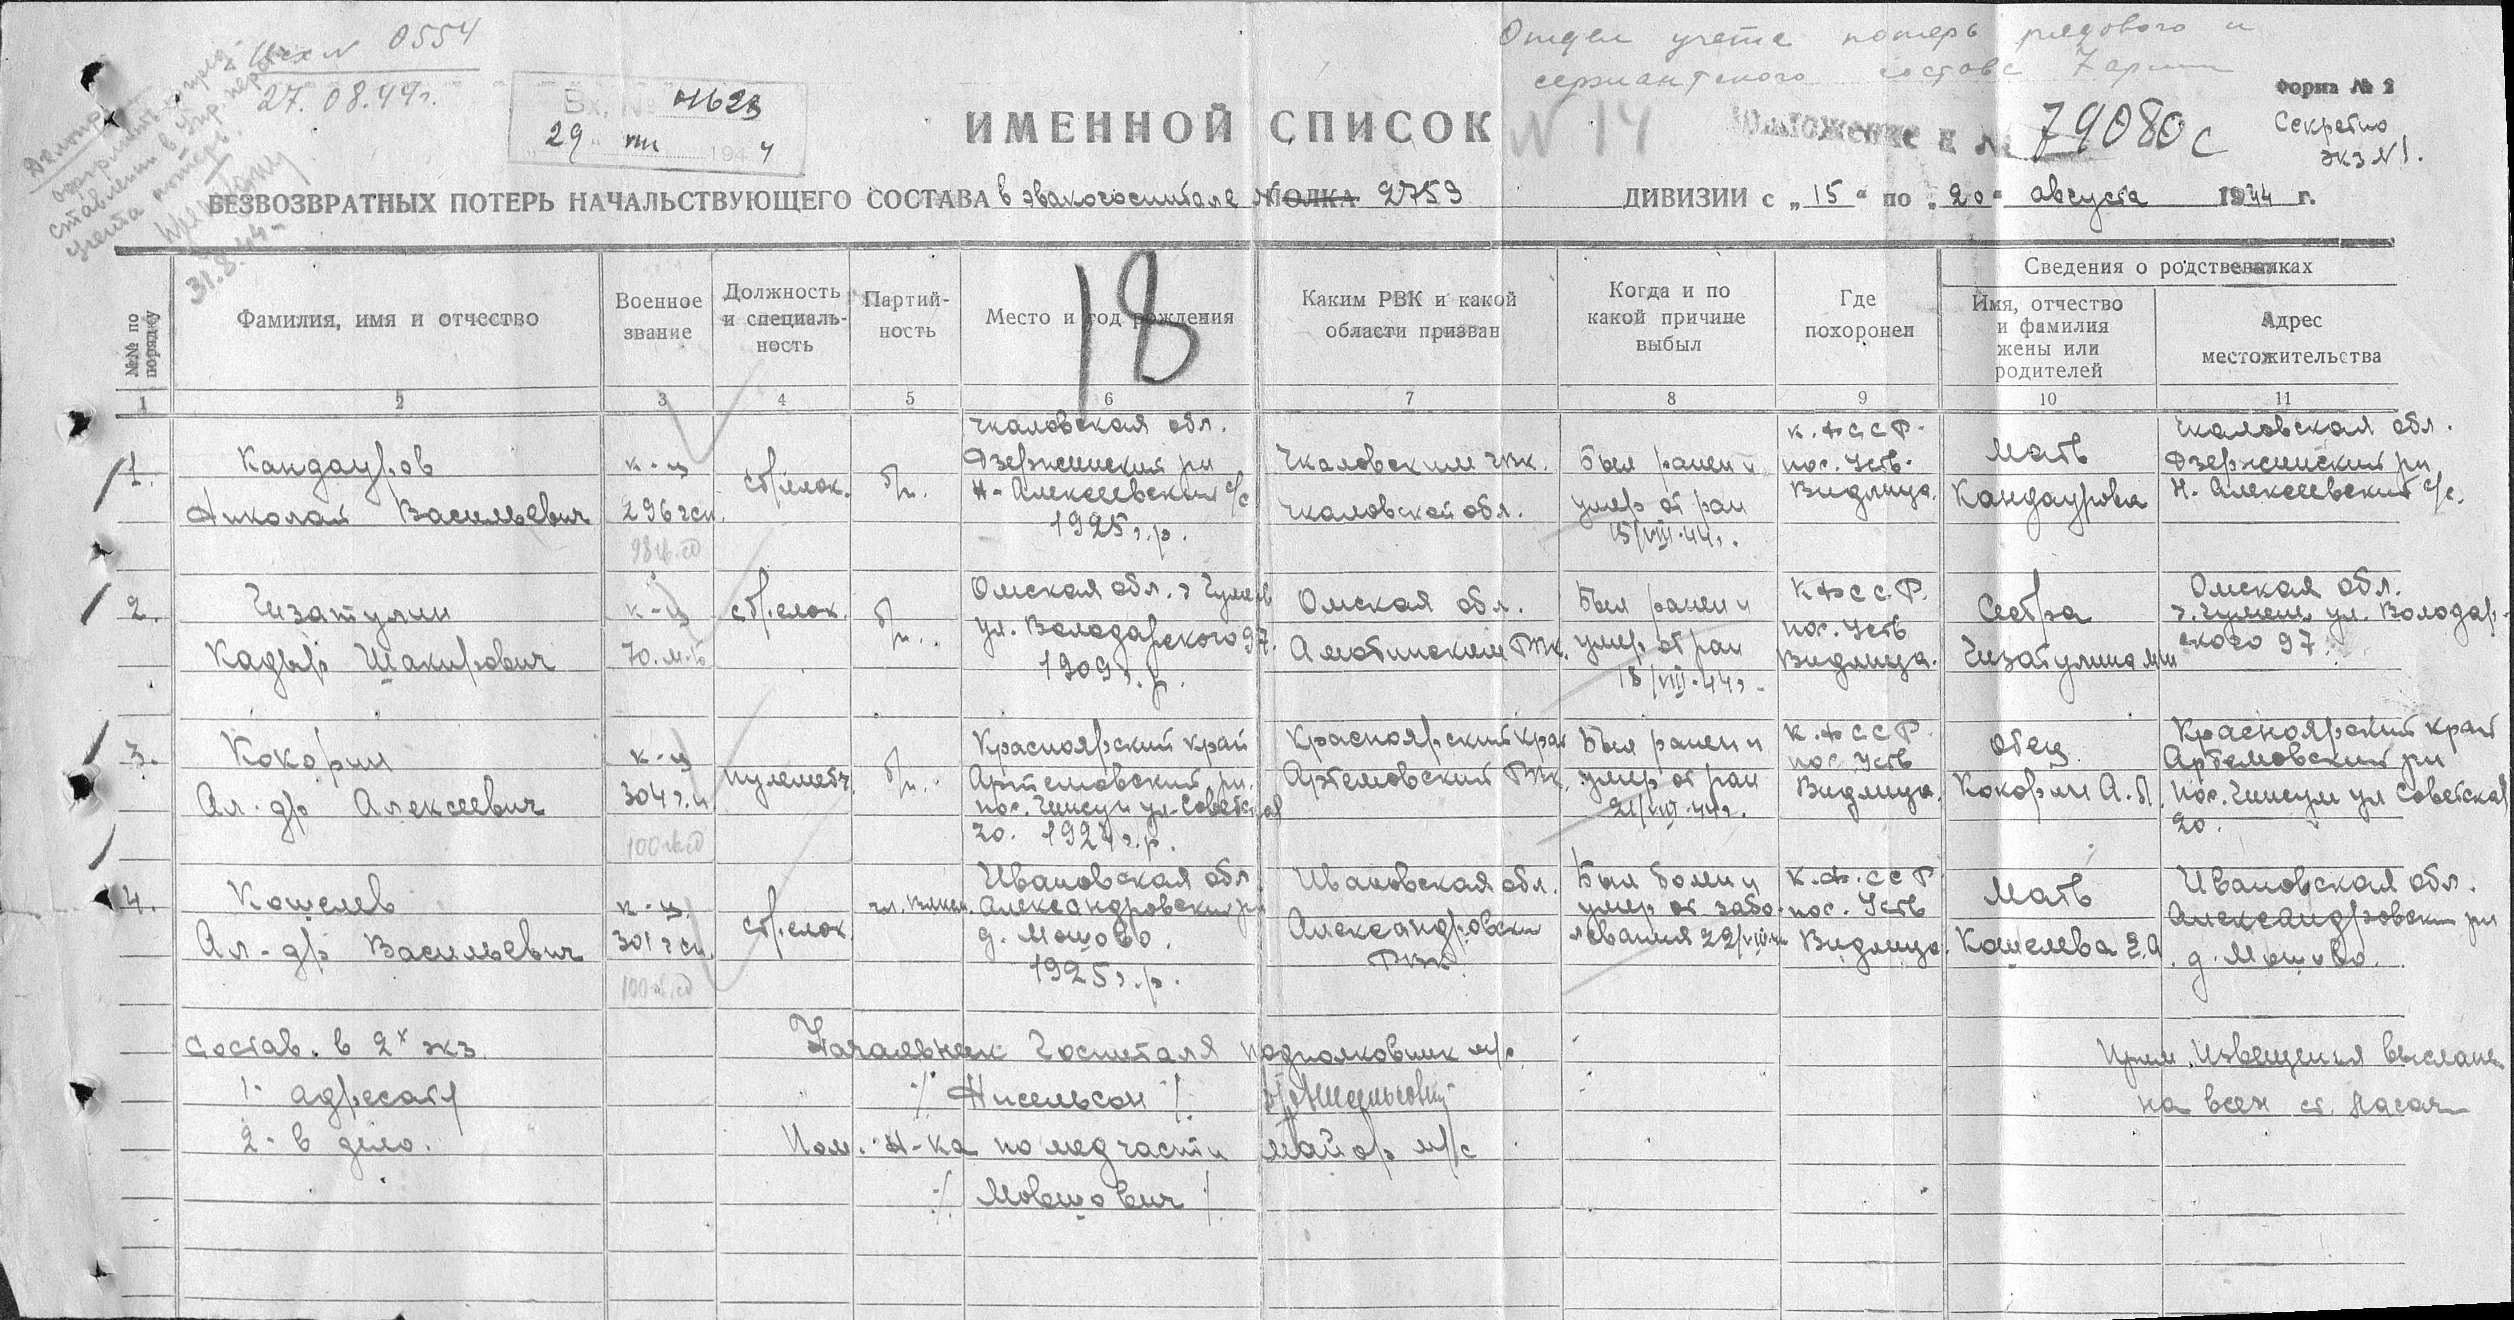 Исх N 0554
27.08.44г.
Отдел учета потерь рядового и
сержантского состава 7 армии
Форма № 2
Секретно
экз N 1.
Вх. № 41623
"29" VIII 1944
ИМЕННОЙ СПИСОК N 14
Приложение к № 79080с
БЕЗВОЗВРАТНЫХ ПОТЕРЬ НАЧАЛЬСТВУЮЩЕГО СОСТАВА в эвакогоспитале N ПОЛКА 2753 ДИВИЗИИ с „15" по „20" августа 1944 г.
31.8.44
18
№№ по порядку
Фамилия, имя и отчество
Военное звание
Должность и специаль-ность
Партий-ность
Место и год рождения
Каким РВК и какой области призван
Когда и по какой причине выбыл
Где похоронен
Сведения о родственниках
Имя, отчество и фамилия жены или родителей
Адрес местожительства
1 2 3 4 5 6 7 8 9 10 11
1. Кандауров Николай Васильевич
к-ц 296 гсп.
98 гв. сд
стрелок.
б/п.
Чкаловская обл. Дзержинский рн Н-Алексеевский с/с 1925 г.р.
Чкаловским ГВК. Чкаловской обл.
Был ранен и умер от ран 15/VIII.44г.
К.ФССР. пос. Усть-Видлица.
Мать Кандаурова
Чкаловская обл. Дзержинский рн Н. Алексеевский с/с.
2. Гизатулин Кадыр Шакирович
к-ц 70.м.б
стрелок.
б/п.
Омская обл. г Тумень ул. Володарского 97. 1909 г.р.
Омская обл. РВК.
Был ранен и умер от ран 18/VIII.44г.
КФССР. пос. Усть Видлица.
Сестра
Омская обл. г. Тумень ул. Володарского 97.
3. Кокорин Ал-др Алексеевич
к-ц 304 г.п
100 гв сд
пулеметч.
б/п.
Красноярский край Артемовский рн. пос. Чинсун ул-Советская 20. г.р.
Красноярский край Артемовский РВК.
Был ранен и умер от ран 21/VIII.44г.
К.ФССР пос Усть Видлица.
Отец Кокорин А.П.
Красноярский край Артемовский рн пос. ул Советская 20.
4. Кошелев Ал-др Васильевич
к-ц. 301 гсп.
100 гв. сд
стрелок
чл. ВЛКСМ.
Ивановская обл. Александровский рн д. Мошово. 1925 г.р.
Ивановская обл. Александровский РВК.
Был болен и умер от заболевания 22/VIII.44
К.Ф.ССР пос. Усть Видлица.
Мать Кошелева Е.А.
Ивановская обл. Александровский рн д. Мошово.
Состав. в 2х экз.
1- адресату
2- в дело.
Начальник Госпиталя подполковник м/с
/Нисельсон/
Пом. Н-ка по медчасти майор м/с
/Мовшович/
Прим. Извещения высланы
на всех